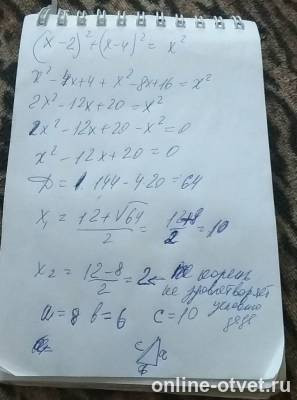 (x-2)²+(x-4)²= x²
x²-4x+4+x²-8x+16=x²
2x²-12x+20=x²
2x²-12x+20-x²=0
x²-12x+20=0
D= 144-4·20=64
x₁ = (12+√64)/2 = (12+8)/2 = 10
x₂ = (12-8)/2 = 2 - не корень
не удовлетворяет
условию
a=8 b=6 c=10
c a
b
online-otvet.ru